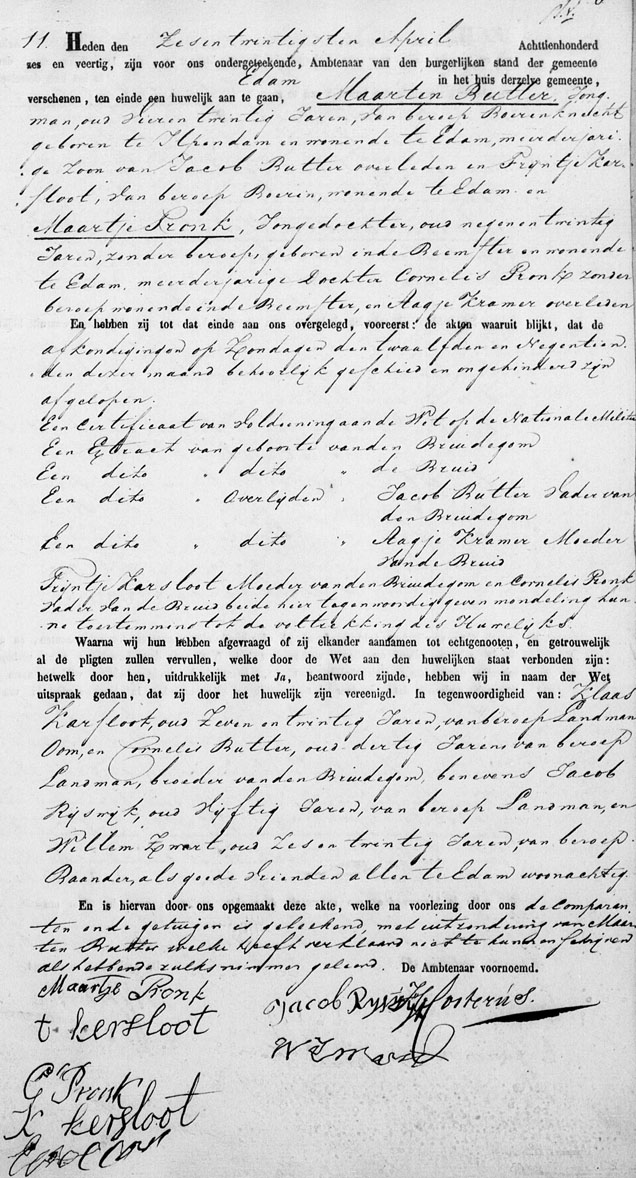 11. Heden den Zesentwintigsten April Achttienhonderd
zes en veertig, zijn voor ons ondergeteekende, Ambtenaar van den burgerlijken stand der gemeente
Edam in het huis derzelve gemeente,
verschenen, ten einde een huwelijk aan te gaan, Maarten Butter, Jong-
man, oud Vierentwintig Jaren, van beroep Boerenknecht
geboren te Ilpendam en wonende te Edam, meerderjari-
ge Zoon van Jacob Butter overleden en Trijntje Kar-
sloot, van beroep Boerin, wonende te Edam en
Maartje Pronk, Jongedochter, oud negenentwintig
Jaren, zonder beroep, geboren inde Beemster en wonende
te Edam, meerderjarige Dochter Cornelis Pronk zonder
beroep wonende inde Beemster, en Aagje Kramer overleden
En hebben zij tot dat einde aan ons overgelegd, vooreerst: de akten waaruit blijkt, dat de
afkondigingen op Zondagen den twaalfden en Negentien-
den dezer maand behoorlijk geschied en ongehinderd zijn
afgelopen.
Een Certificaat van Voldoening aan de Wet op de Nationale Militie
Een Extract van geboorte vanden Bruidegom
Een dito " dito " de Bruid
Een dito " Overlijden " Jacob Butter Vader van
den Bruidegom
Een dito " dito " Aagje Kramer Moeder
van de Bruid
Trijntje Karsloot Moeder vanden Bruidegom en Cornelis Pronk
Vader van de Bruid beide hier tegenwoordig geven mondeling hun-
ne toestemming tot de voltrekking des Huwelijks.
Waarna wij hun hebben afgevraagd of zij elkander aannamen tot echtgenooten, en getrouwelijk
al de pligten zullen vervullen, welke door de Wet aan den huwelijken staat verbonden zijn:
hetwelk door hen, uitdrukkelijk met Ja, beantwoord zijnde, hebben wij in naam der Wet
uitspraak gedaan, dat zij door het huwelijk zijn vereenigd. In tegenwoordigheid van: Klaas
Karsloot, oud Zeven en twintig Jaren, van beroep Landman
Oom, en Cornelis Butter, oud dertig Jaren van beroep
Landman, broeder vanden Bruidegom, benevens Jacob
Rijswijk, oud Vijftig Jaren, van beroep Landman, en
Willem Zwart, oud Zesentwintig Jaren, van beroep
Baander, als goede Vrienden allen te Edam woonachtig.
En is hiervan door ons opgemaakt deze akte, welke na voorlezing door ons de Comparan-
ten en de getuigen is geteekend, met uitzondering van Maar-
ten Butter welke heeft verklaard niet te kunnen schrijven
als hebbende zulks nimmer geleerd. De Ambtenaar voornoemd.
Maartje Pronk
t kersloot Jacob Rys
W Zwart
C Pronk
K kersloot